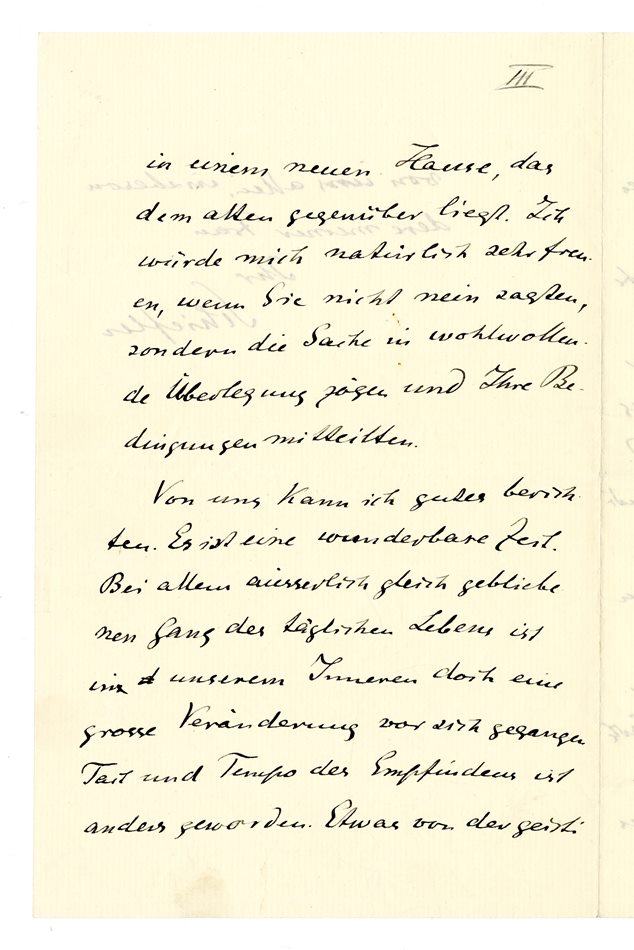 III
in einem neuen Hause, das
dem alten gegenüber liegt. Ich
würde mich natürlich sehr freu-
en, wenn Sie nicht nein sagten,
sondern die Sache in wohlwollen-
de Überlegung zögen und Ihre Be-
dingungen mitteilten.
Von uns kann ich gutes berich-
ten. Es ist eine wunderbare Zeit.
Bei allem äusserlich gleich gebliebe
nen Gang des täglichen Lebens ist
in unserem Inneren doch eine
grosse Veränderung vor sich gegangen
Takt und Tempo des Empfindens ist
anders geworden. Etwas von der geisti